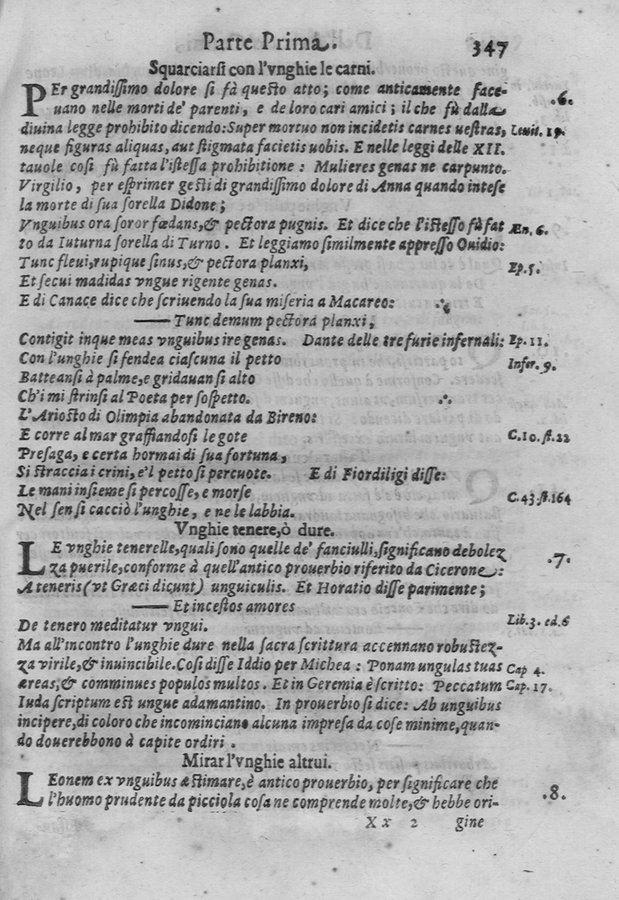 Parte Prima. 347
Squarciarsi con l'vnghie le carni.
PEr grandissimo dolore si fà questo atto; come anticamente face- .6.
uano nelle morti de' parenti, e de loro cari amici; il che fù dalla
diuina legge prohibito dicendo: Super mortuo non incidetis carnes uestras, Leuit. 19.
neque figuras aliquas, aut stigmata facietis uobis. E nelle leggi delle XII.
tauole cosi fù fatta l'istessa prohibitione: Mulieres genas ne carpunto.
Virgilio, per esprimer gesti di grandissimo dolore di Anna quando intese
la morte di sua sorella Didone;
Vnguibus ora soror fœdans, & pectora pugnis. Et dice che l'istesso fù fat Æn. 6.
to da Iuturna sorella di Turno. Et leggiamo similmente appresso Ouidio:
Tunc fleui, rupique sinus, & pectora planxi, Ep. 5.
Et secui madidas vngue rigente genas.
E di Canace dice che scriuendo la sua miseria a Macareo:
—— Tunc demum pectora planxi,
Contigit inque meas vnguibus ire genas. Dante delle tre furie infernali: Ep. 11.
Con l'unghie si fendea ciascuna il petto Infer. 9.
Batteansi à palme, e gridauan sì alto
Ch'i mi strinsi al Poeta per sospetto.
L'Ariosto di Olimpia abandonata da Bireno:
E corre al mar graffiandosi le gote C. 10. st. 22
Presaga, e certa hormai di sua fortuna,
Si straccia i crini, e'l petto si percuote. E di Fiordiligi disse:
Le mani insieme si percosse, e morse C. 43. st. 164
Nel sen si cacciò l'unghie, e ne le labbia.
Vnghie tenere, ò dure.
LE vnghie tenerelle, quali sono quelle de' fanciulli, significano debolez .7.
za puerile, conforme à quell'antico prouerbio riferito da Cicerone:
A teneris (vt Græci dicunt) unguiculis. Et Horatio disse parimente;
—— Et incestos amores
De tenero meditatur vngui. Lib. 3. od. 6
Ma all'incontro l'unghie dure nella sacra scrittura accennano robustez-
za virile, & inuincibile. Cosi disse Iddio per Michea: Ponam ungulas tuas Cap 4.
æreas, & comminues populos multos. Et in Geremia è scritto: Peccatum Cap. 17.
Iuda scriptum est ungue adamantino. In prouerbio si dice: Ab unguibus
incipere, di coloro che incominciano alcuna impresa da cose minime, quan-
do douerebbono à capite ordiri.
Mirar l'vnghie altrui.
LEonem ex vnguibus æstimare, è antico prouerbio, per significare che .8.
l'huomo prudente da picciola cosa ne comprende molte, & hebbe ori-
Xx 2 gine